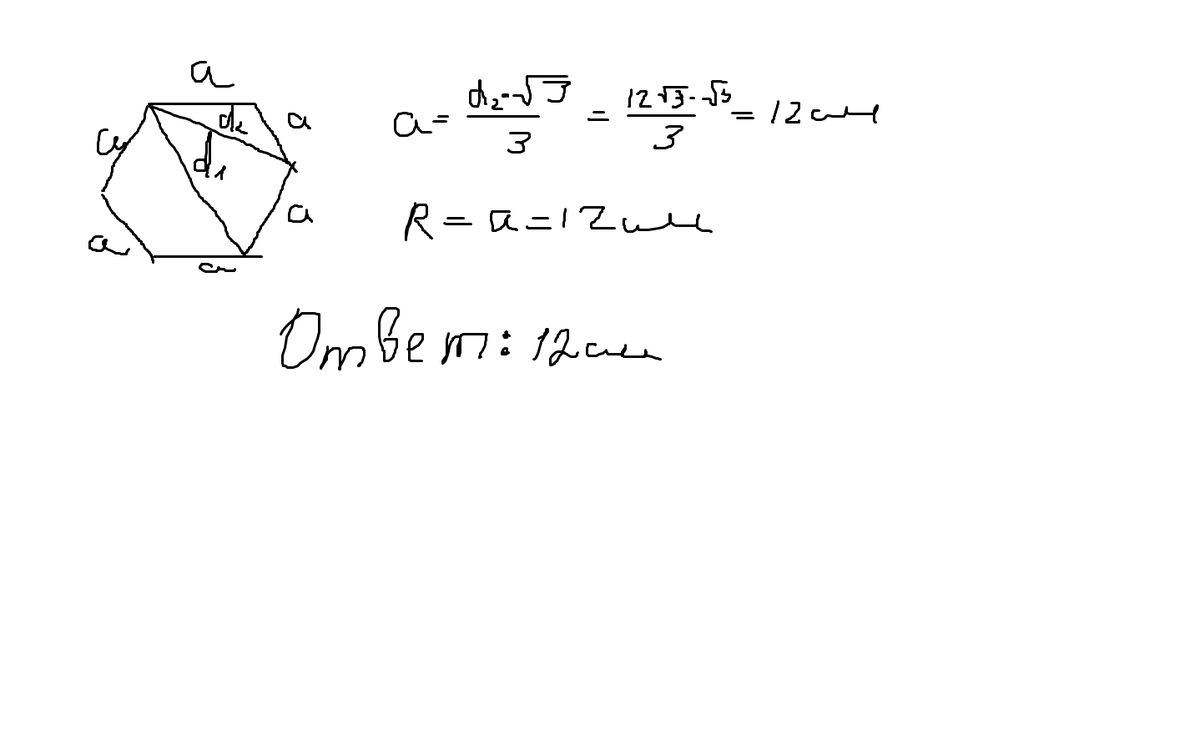 a
a
d₂
a
d₁
a
a
a
a = d₂·√3 / 3 = 12√3·√3 / 3 = 12 см
R = a = 12 см
Ответ: 12 см